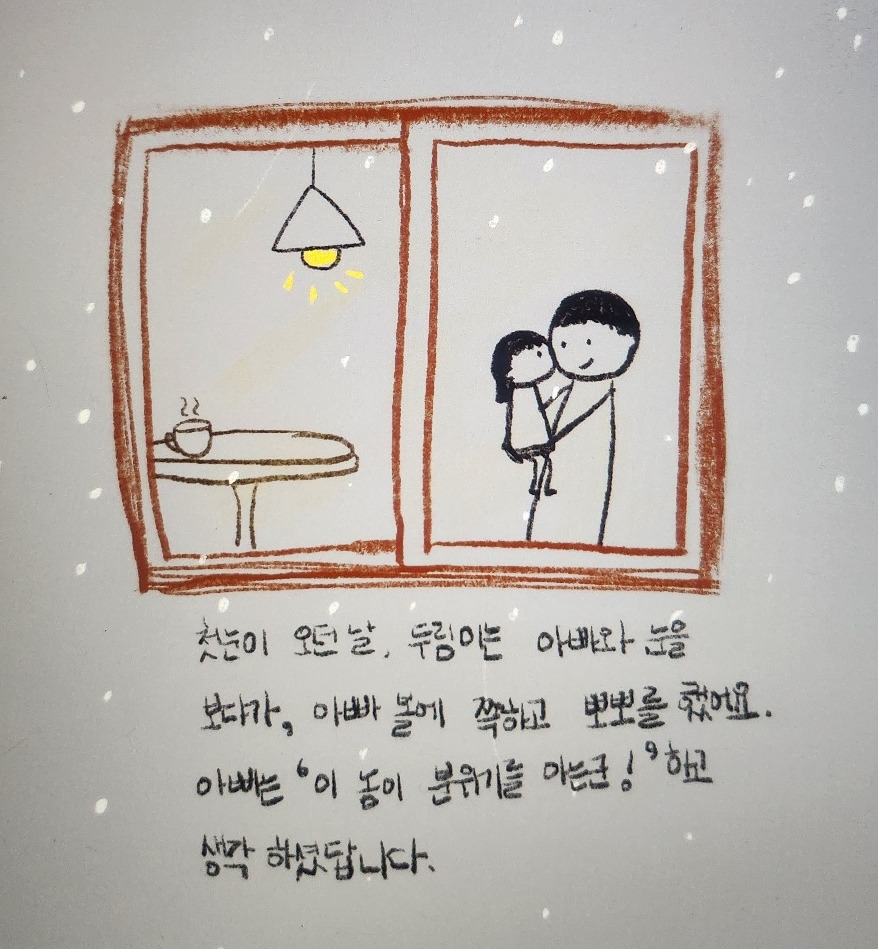 첫눈이 오던 날, 두림이는 아빠와 눈을
보다가, 아빠 볼에 쪽하고 뽀뽀를 했어요.
아빠는 '이 놈이 분위기를 아는군!' 하고
생각 하셨답니다.